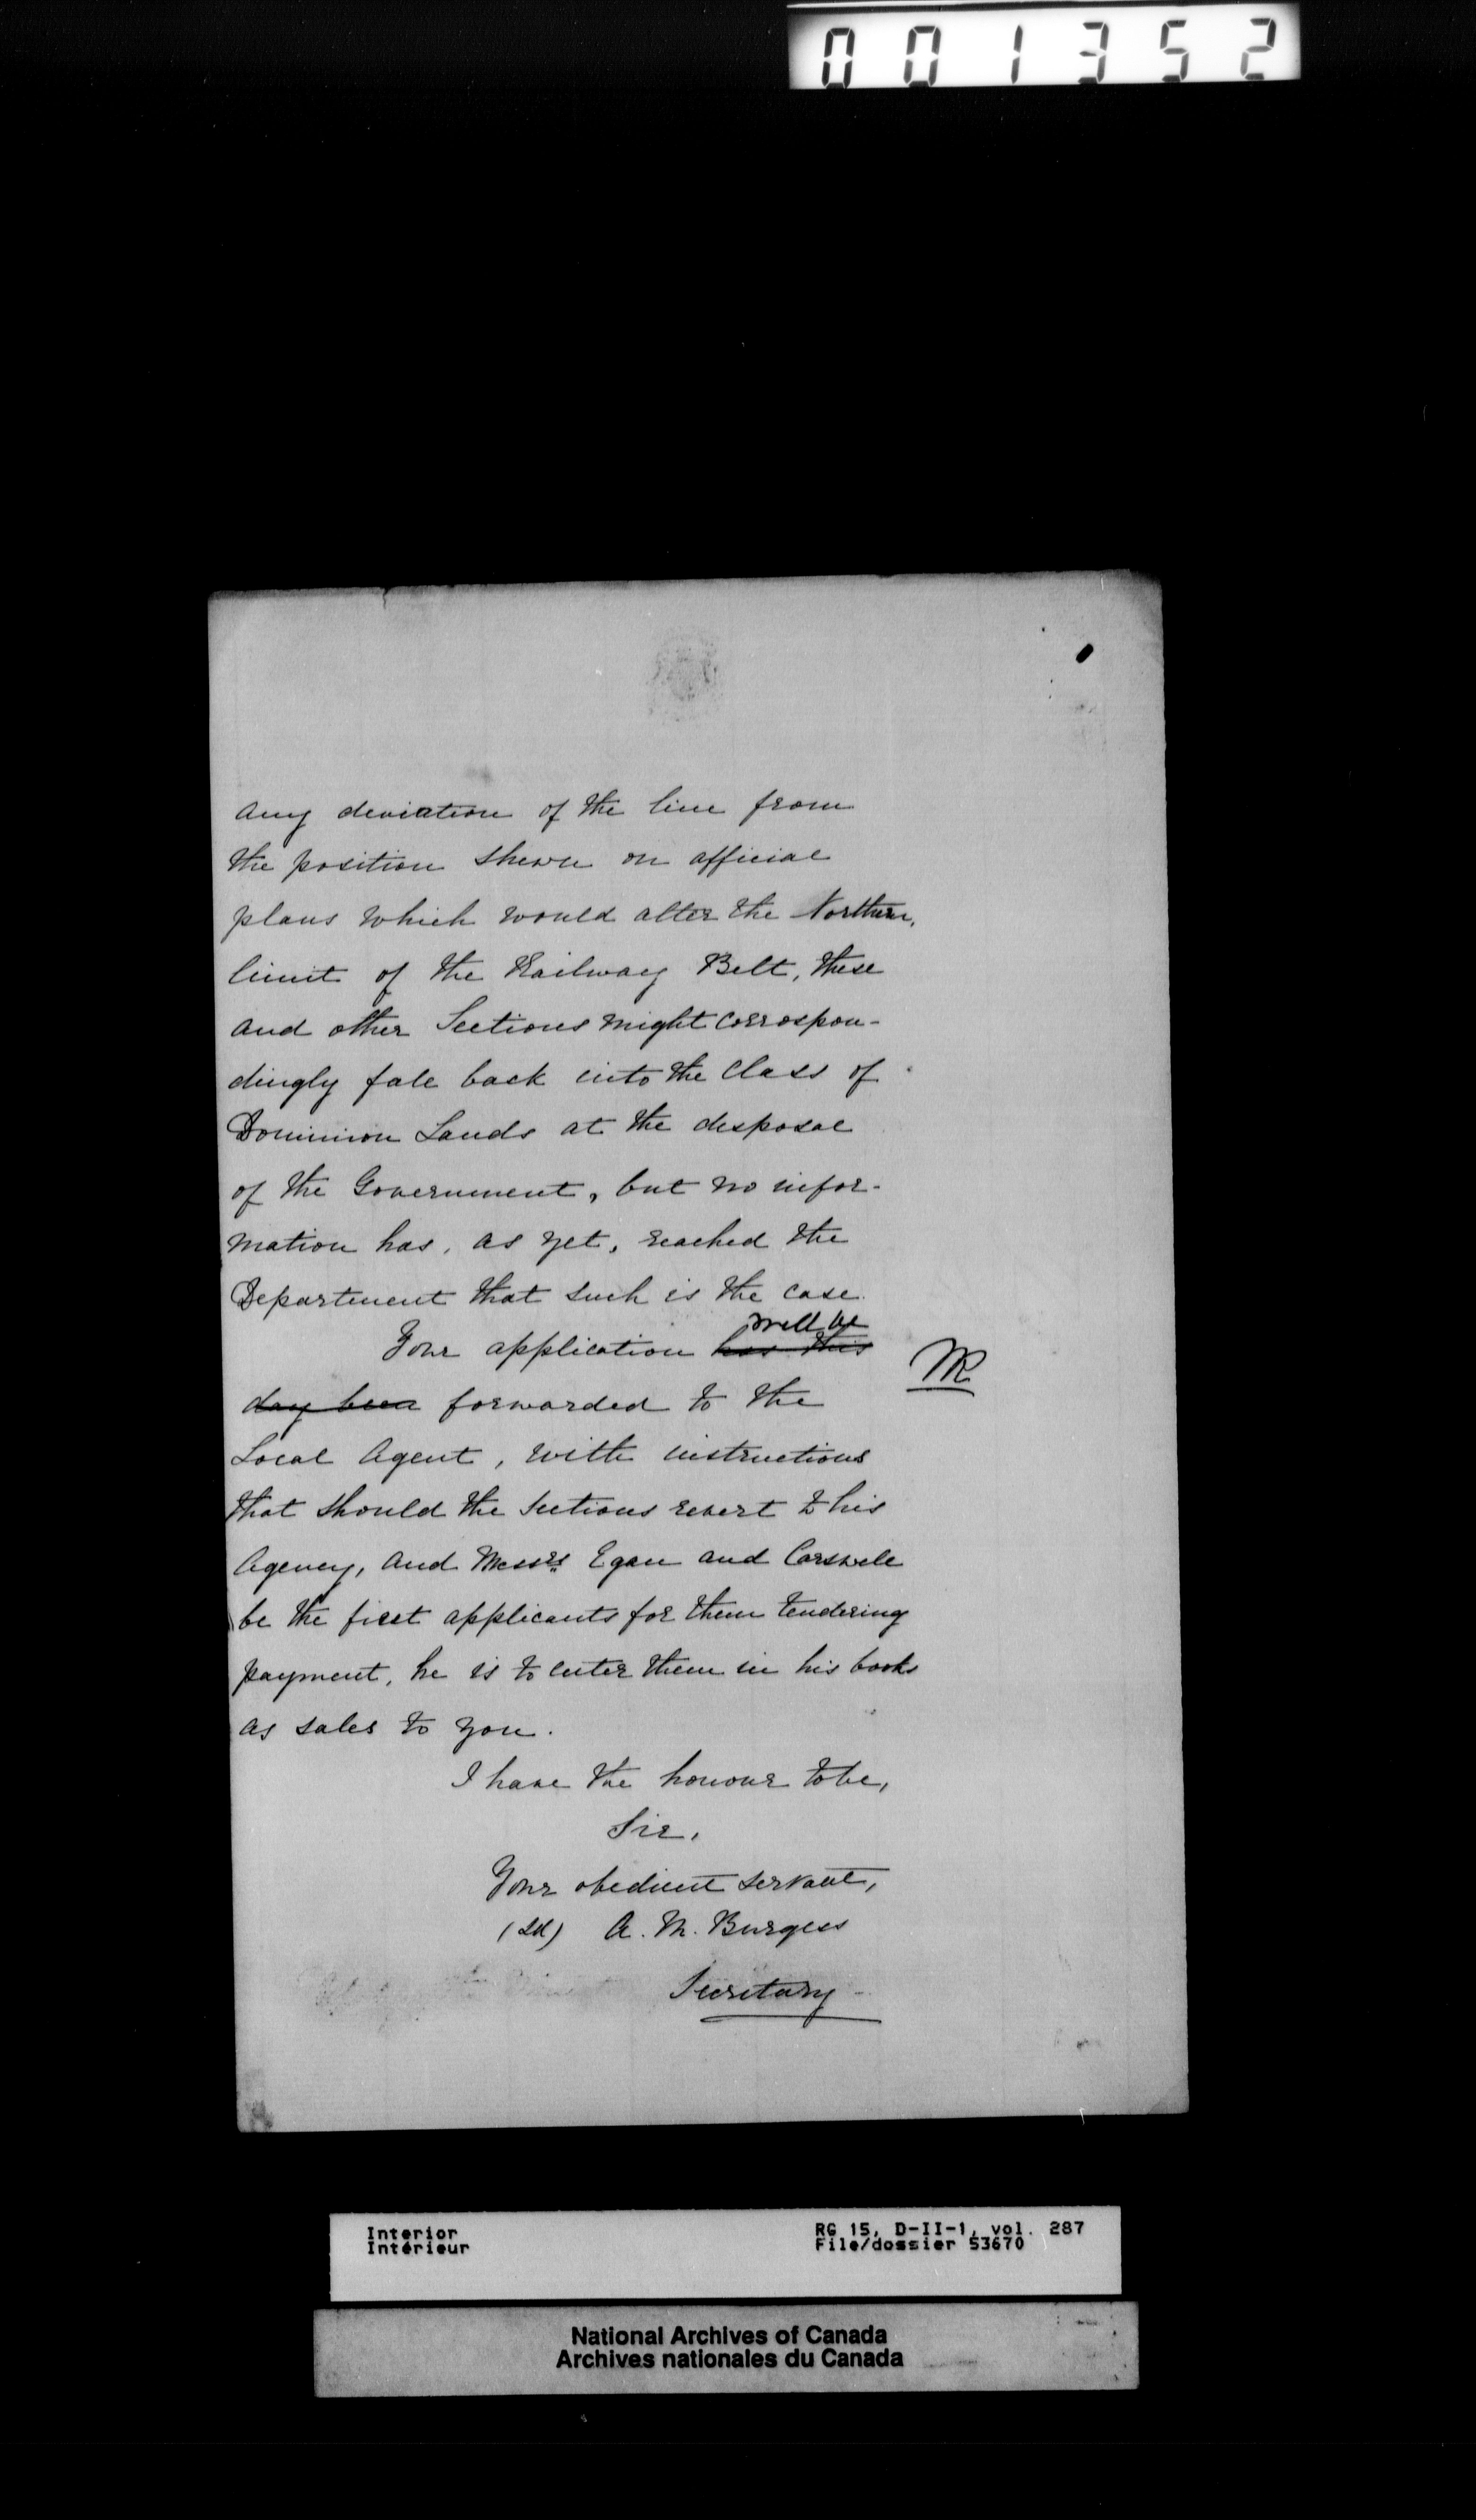 001352
any deviation of the line from
the position shewn on official
plans which would alter the Northern
limit of the Railway Belt, these
and other Sections might correspon-
dingly fall back into the class of
Dominion Lands at the disposal
of the Government, but no infor-
mation has, as yet, reached the
Department that such is the case.
will be
Your application has this
day been forwarded to the
Local Agent, with instructions
that should the Sections revert to his
Agency, and Messrs Egan and Carswell
be the first applicants for them tendering
payment, he is to enter them in his books
as sales to you.
I have the honour to be,
Sir,
Your obedient servant,
(Sd) A. M. Burgess
Secretary
Interior
Intérieur
RG 15, D-II-1, vol. 287
File/dossier 53670
National Archives of Canada
Archives nationales du Canada